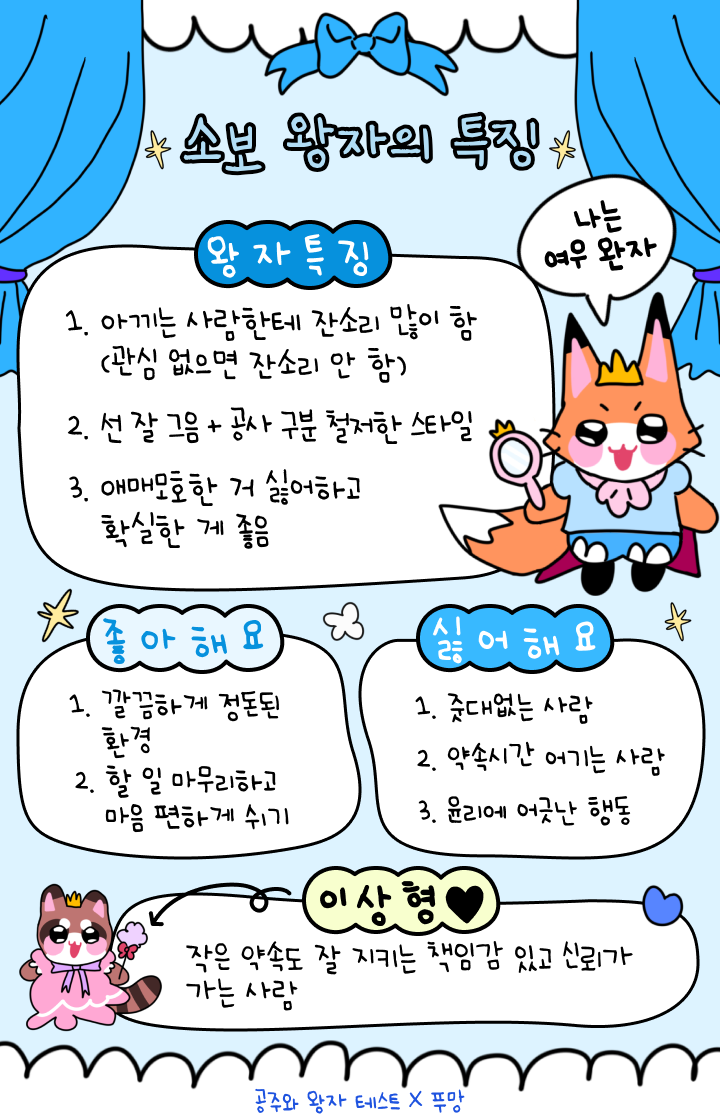 소보 왕자의 특징
나는
여우 왕자
왕자특징
1. 아끼는 사람한테 잔소리 많이 함
(관심 없으면 잔소리 안 함)
2. 선 잘 그음 + 공사 구분 철저한 스타일
3. 애매모호한 거 싫어하고
확실한 게 좋음
좋아해요
1. 깔끔하게 정돈된
환경
2. 할 일 마무리하고
마음 편하게 쉬기
싫어해요
1. 줏대없는 사람
2. 약속시간 어기는 사람
3. 윤리에 어긋난 행동
이상형♥
작은 약속도 잘 지키는 책임감 있고 신뢰가
가는 사람
공주와 왕자 테스트 X 푸망